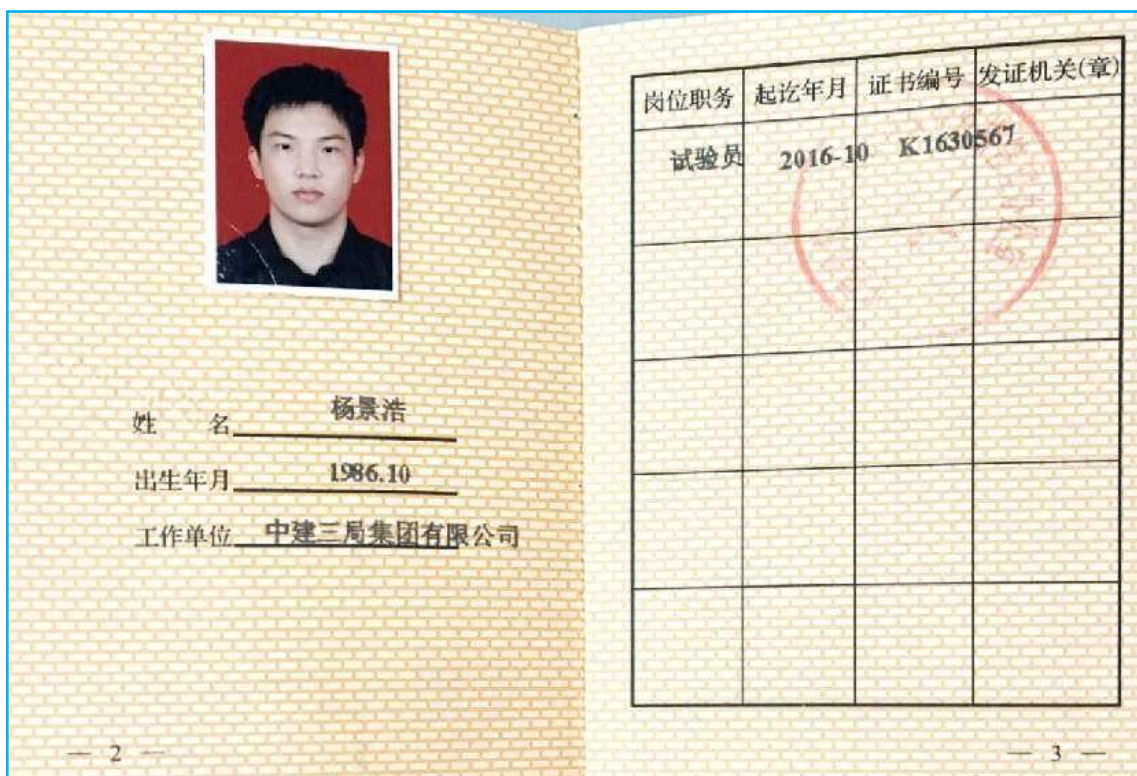 姓 名 杨景浩
出生年月 1986.10
工作单位 中建三局集团有限公司
— 2 —
岗位职务 起讫年月 证书编号 发证机关(章)
试验员 2016-10 K1630567
— 3 —